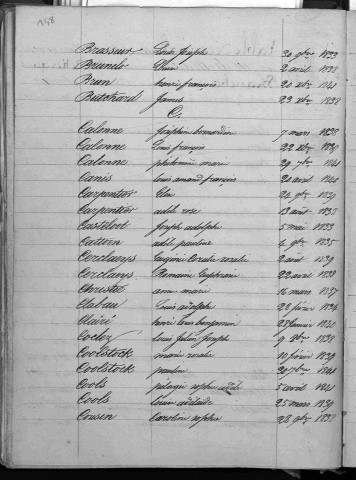 148
Brasseur Louis Joseph 20 9bre 1833
Brunelo 2 avril 1838
Brun henri françois 20 xbre 1840
Butchard James 23 xbre 1838
C.
Calonne Joséphin bernardin 7 mars 1832
Calonne Louis françois 22 xbre 1830
Calonne philomène marie 29 7bre 1841
Canis louis amand françois 20 avril 1840
Carpentier 24 9bre 1839
Carpentier adèle rose 13 aout 1837
Casteloot Joseph adolphe 5 mai 1833
Cattoen adèle pauline 4 9bre 1835
Cerclaeys Eugénie Coralie rosalie 2 avril 1839
Cerclaeys Romain Euphrasie 22 avril 1832
Christie ann marie 16 mars 1837
Clabau Louis adolphe 28 février 1834
Claire henri louis benjamin 25 janvier 1840
Cocley louis Julien Joseph 9 8bre 1838
Coolstock marie rosalie 10 février 1839
Coolstock pauline 20 7bre 1841
Cools pélagie sophie adèle 5 avril 1841
Cools louise adélaïde 25 mars 1839
Cousin Caroline sophie 28 9bre 1832